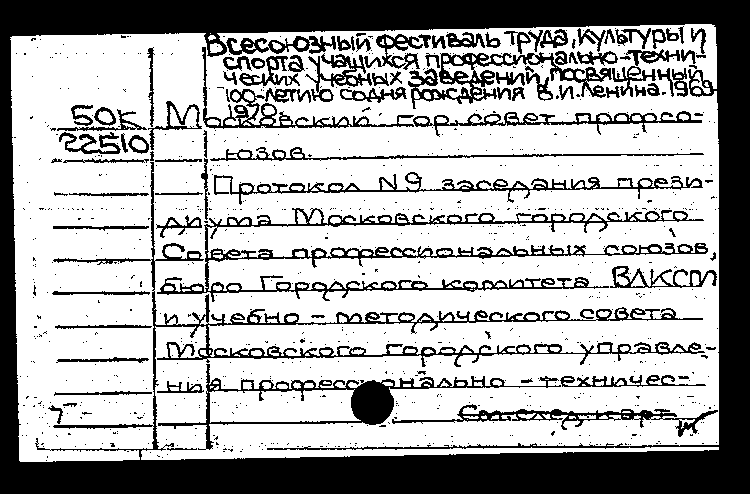 Всесоюзный фестиваль труда, культуры и
спорта учащихся профессионально-техни-
ческих учебных заведений, посвященный
100-летию со дня рождения В.И.Ленина. 1969-
1970.
50К Московский гор. совет профсо-
22510 юзов.
Протокол №9 заседания прези-
диума Московского городского
Совета профессиональных союзов,
бюро Городского комитета ВЛКСМ
и учебно-методического совета
Московского городского управле-
ния профессионально-техничес-
См. след. карт.